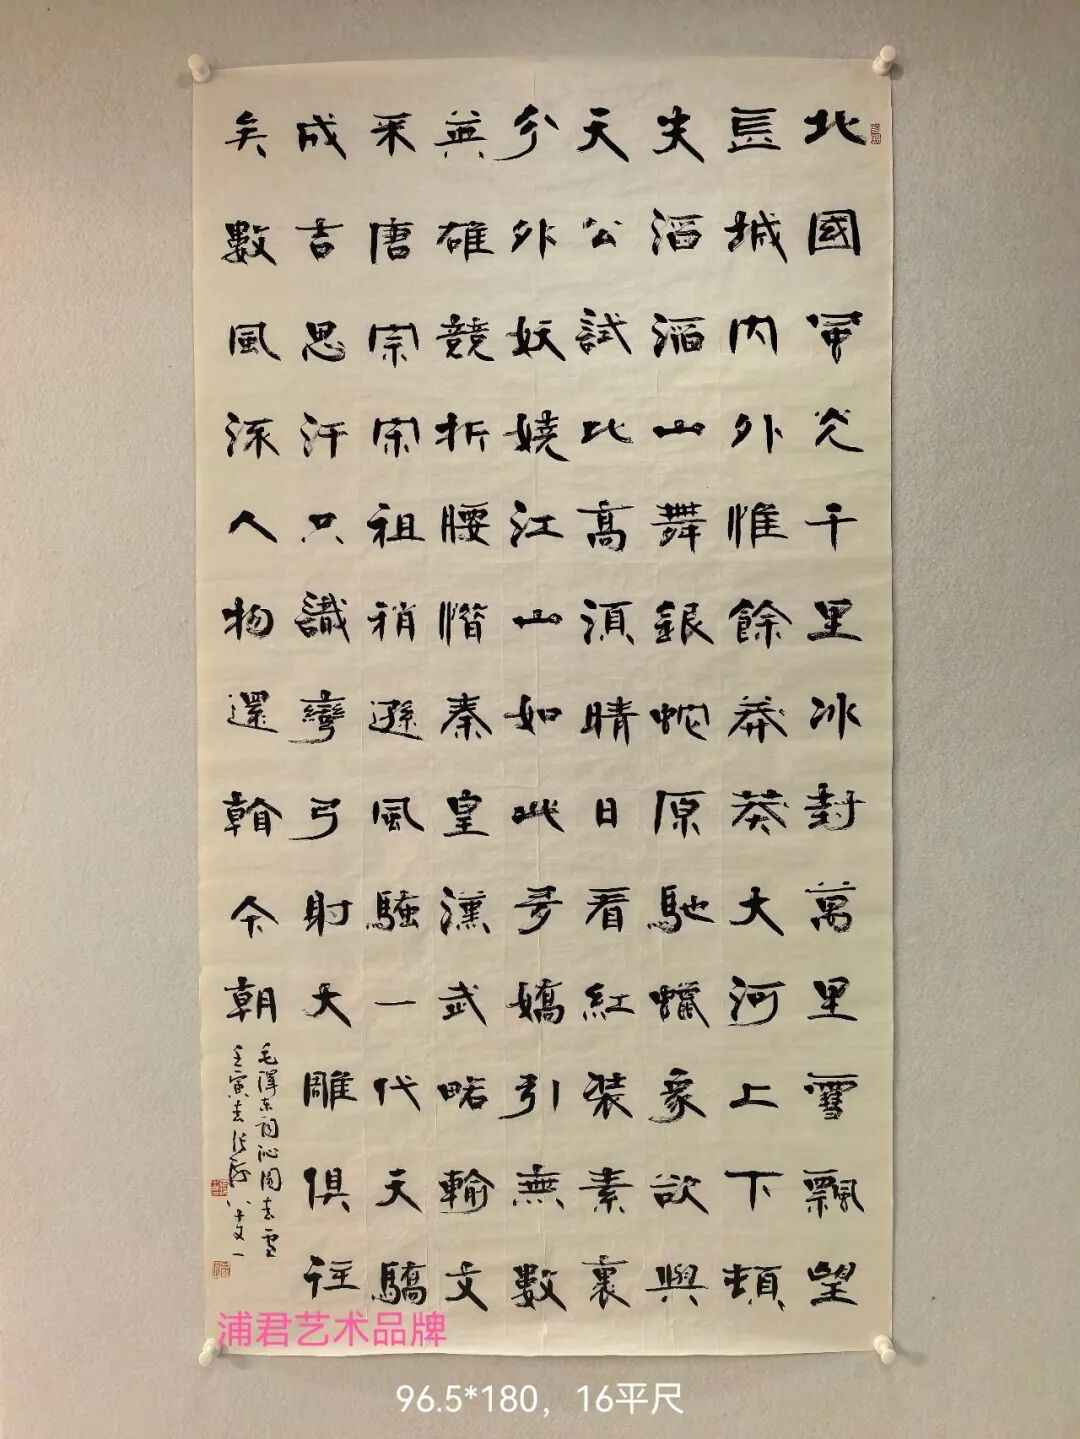 北國風光千里冰封萬里雪飄望
長城内外惟餘莽莽大河上下頓
失滔滔山舞銀蛇原馳蠟象欲與
天公試比高須晴日看紅装素裹
分外妖嬈江山如此多嬌引無數
英雄競折腰惜秦皇漢武略輸文
采唐宗宋祖稍遜風騷一代天驕
成吉思汗只識彎弓射大雕俱往
矣數風流人物還看今朝
毛澤东词沁园春雪
壬寅春八十又一
浦君艺术品牌
96.5*180，16平尺